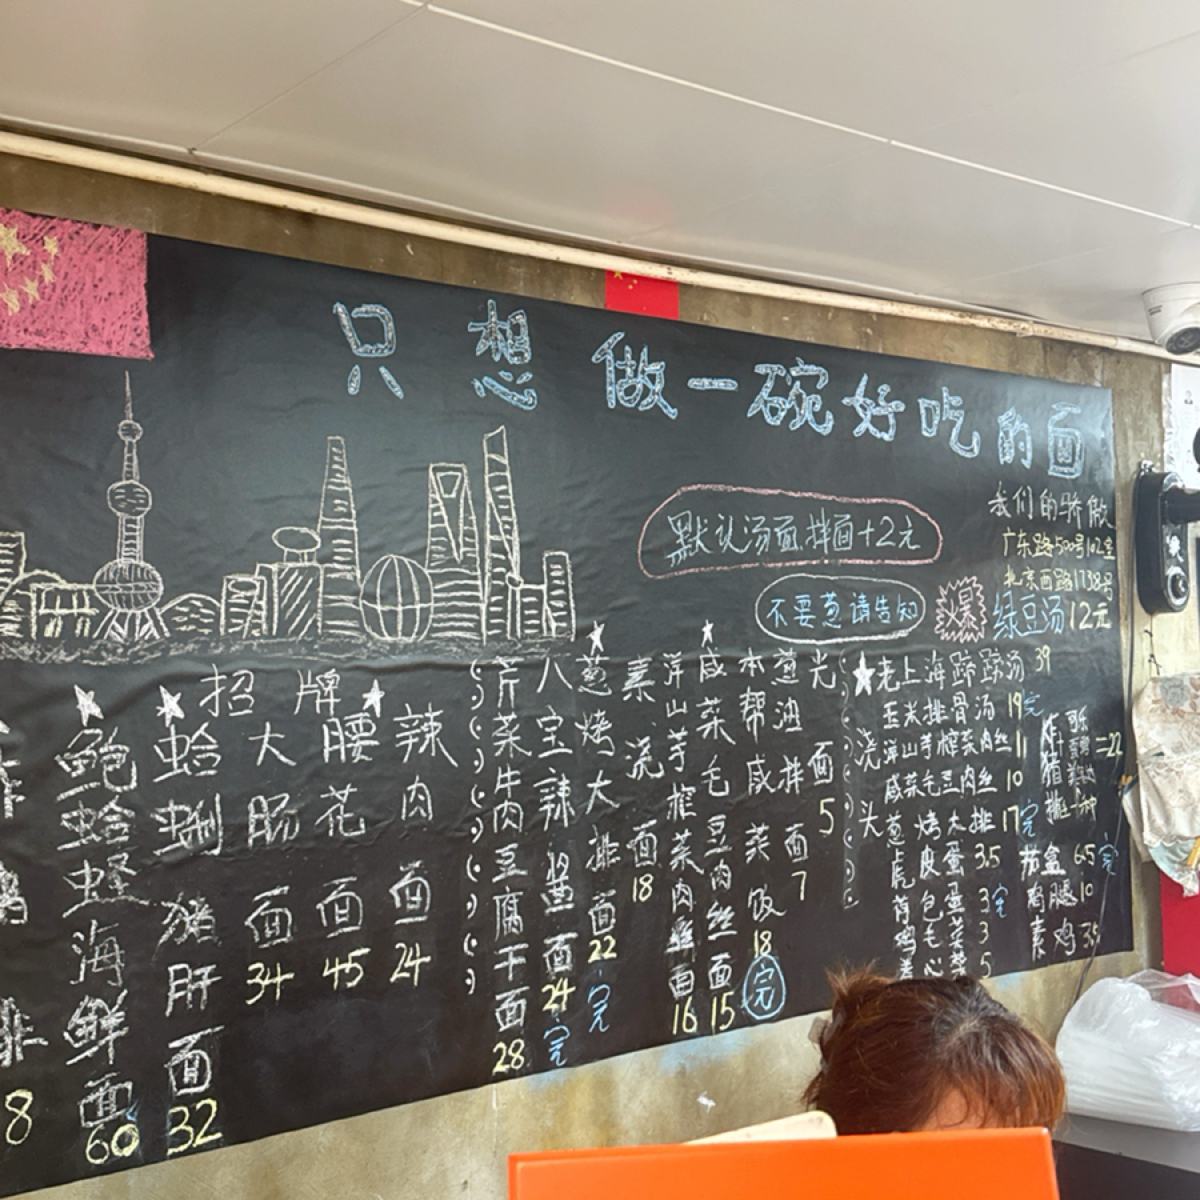 只想做一碗好吃的面
我们的骄傲
广东路500号102室
北京西路1738号
默认汤面拌面+2元
不要葱请告知
爆 绿豆汤12元
招牌
8
鲍蛤蛏海鲜面 60
蛤蜊猪肝面 32
大肠面 34
腰花面 45
辣肉面 24
芹菜牛肉豆腐干面 28
八宝辣酱面 24 完
葱烤大排面 22 完
素浇面 18
洋山芋榨菜肉丝面 16
咸菜毛豆肉丝面 15
本帮咸菜饭 18 完
葱油拌面 7
光面 5
浇头
老上海蹄髈汤 39
玉米排骨汤 19 完
洋山芋榨菜肉丝 11
咸菜毛豆肉丝 10
葱烤大排 17 完
虎皮蛋 3.5
荷包蛋 3 完
鸡毛菜 3
卷心菜 5
炸猪排
=22
茄盒 6.5 完
鸡腿 10
素鸡 3.5